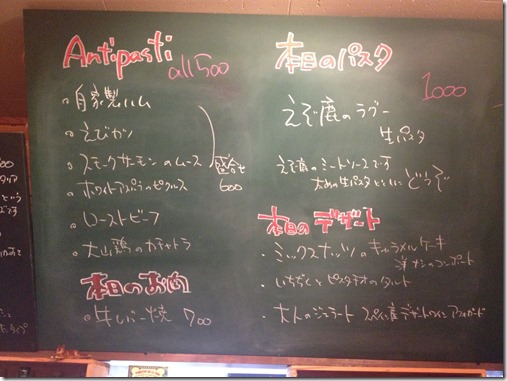 Antipasti
all 500
自家製ハム
えびカツ
スモークサーモンのムース
盛合せ
600
ホワイトアスパラのピクルス
ローストビーフ
大山鶏のカチャトラ
本日のお肉
牛レバー焼 700
本日のパスタ
1000
えぞ鹿のラグー
生パスタ
えぞ鹿のミートソースです
太めの生パスタとともに どうぞ
本日のデザート
ミックスナッツのキャラメルケーキ
洋ナシのコンポート
いちぢくとピスタチオのタルト
大人のジェラート スペイン産デザートワイン アフォガード